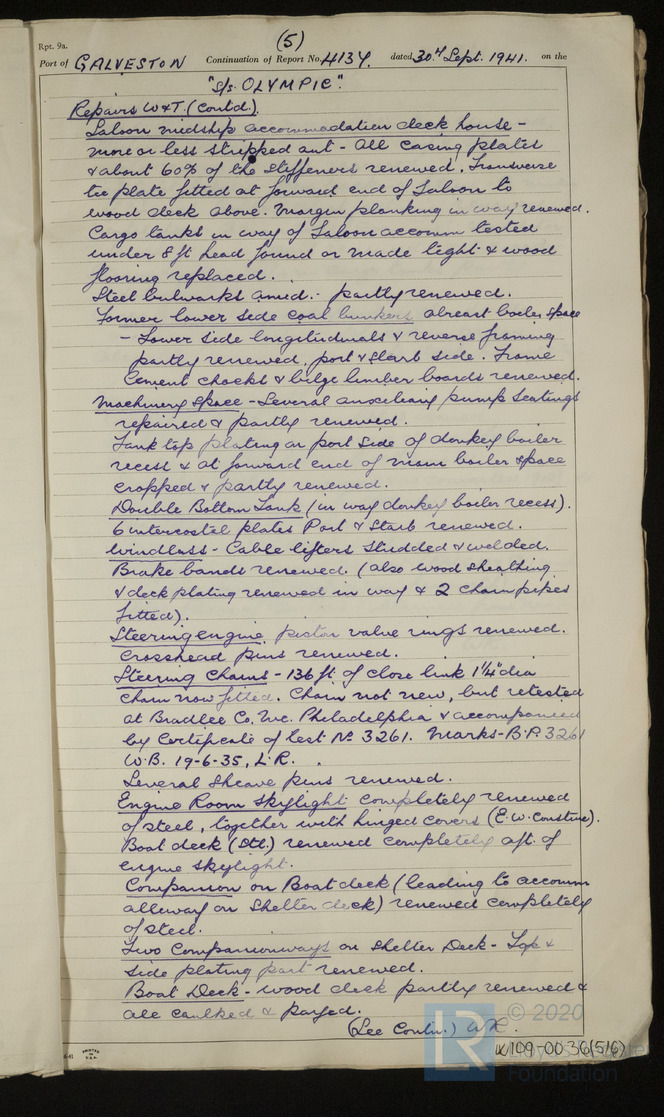 (5)
Rpt. 9a.
Port of GALVESTON Continuation of Report No. 4134. dated 30th Sept. 1941. on the
"S/S. OLYMPIC".
Repairs W&T. (Contd.)
Saloon midship accommodation deck house -
more or less stripped out - All casing plates
& about 60% of the stiffeners renewed. Transverse
tie plate fitted at forward end of Saloon to
wood deck above. Margin planking in way renewed.
Cargo tanks in way of Saloon accomm tested
under 8 ft head found or made tight & wood
flooring replaced.
Steel bulwarks amid: - partly renewed.
Former lower side coal bunkers abreast boiler space
- Lower side longitudinals & reverse framing
partly renewed, port & starb side. Frame
cement chocks & bilge limber boards renewed.
Machinery Space - Several auxiliary pump seatings
repaired & partly renewed.
Tank top plating on port side of donkey boiler
recess & at forward end of main boiler space
cropped & partly renewed.
Double Bottom Tank (in way donkey boiler recess).
6 intercostal plates Port & Starb renewed.
Windlass - Cable lifters studded & welded.
Brake bands renewed. (also wood sheathing
& deck plating renewed in way & 2 chain pipes
fitted).
Steering engine piston valve rings renewed.
Crosshead pins renewed.
Steering Chains - 136 ft of close link 1¼" dia
chain now fitted. Chain not new, but retested
at Bradlee Co, Inc. Philadelphia & accompanied
by Certificate of test No 3261. Marks - B.P. 3261
W.B. 19-6-35, L.R.
Several sheave pins renewed.
Engine Room Skylight completely renewed
of steel, together with hinged covers (E.W. Constrn).
Boat deck (Stl.) renewed completely aft. of
engine skylight.
Companion on Boat deck (leading to accomm
alleway on Shelter deck) renewed completely
of steel.
Two Companionways on Shelter Deck - Top &
side plating part renewed.
Boat Deck - wood deck partly renewed &
all caulked & payed.
(See Contn.)
PRINTED IN U.S.A.
© 2020
LR
Foundation
W109-0036(5/6)